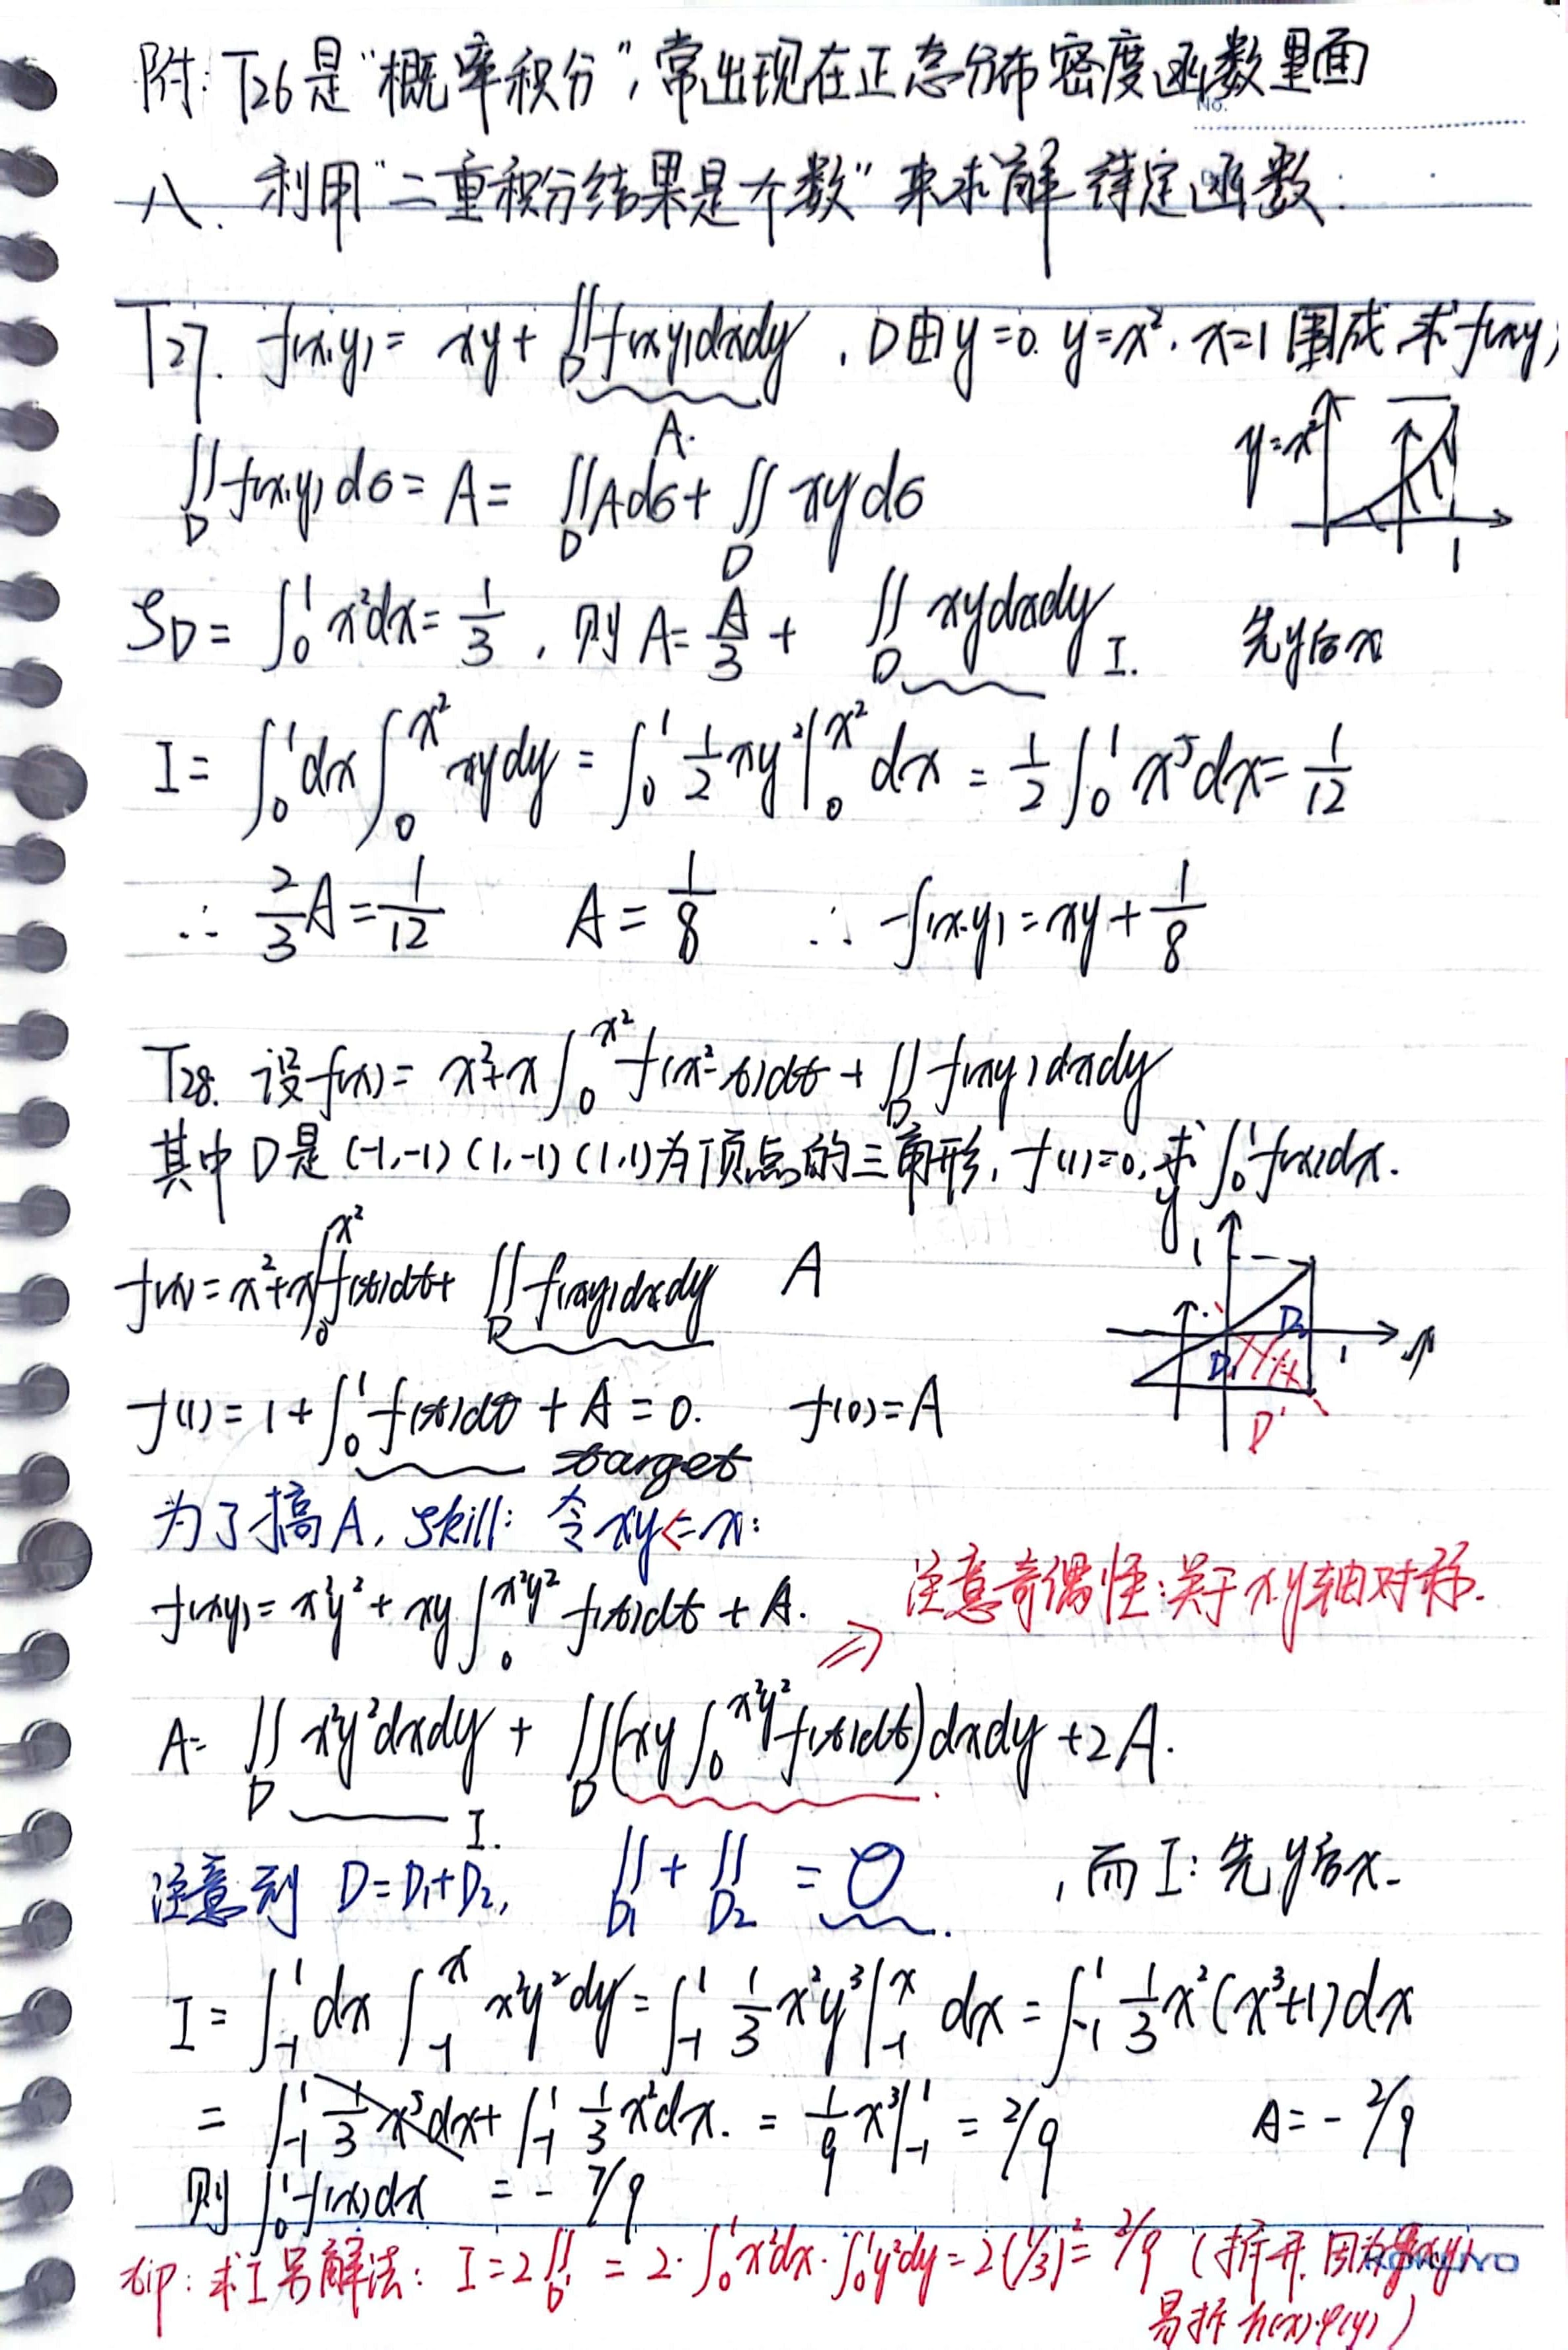 附: T26是“概率积分”, 常出现在正态分布密度函数里面
No.
八. 利用“二重积分结果是个数”来求解待定函数.
T27. f(x,y) = xy + ∬_D f(x,y)dxdy . D由y=0. y=x². x=1围成, 求f(x,y)
A.
∬_D f(x,y)dσ = A = ∬_D Adσ + ∬_D xydσ
y=x²
1
S_D = ∫₀¹ x²dx = 1/3 , 则 A = A/3 + ∬_D xydxdy I. 先y后x
I = ∫₀¹ dx ∫₀^{x²} xydy = ∫₀¹ 1/2 xy²|₀^{x²} dx = 1/2 ∫₀¹ x⁵dx = 1/12
∴ 2/3 A = 1/12 A = 1/8 ∴ f(x,y) = xy + 1/8
T28. 设f(x) = x² + x∫₀^{x²} f(x²-t)dt + ∬_D f(xy)dxdy
其中D是(-1,-1) (1,-1) (1,1)为顶点的三角形, f(1)=0, 求∫₀¹ f(x)dx.
f(x) = x² + x∫₀^{x²} f(t)dt + ∬_D f(xy)dxdy A
y
1
D₂
D₁
1 x
D'
f(1) = 1 + ∫₀¹ f(t)dt + A = 0. f(0) = A
target
为了搞A, skill: 令xy<=x:
f(xy) = x²y² + xy∫₀^{x²y²} f(t)dt + A.
⇒ 注意奇偶性: 关于x.y轴对称.
A = ∬_D x²y²dxdy + ∬_D (xy∫₀^{x²y²} f(t)dt)dxdy + 2A.
I.
注意到 D=D₁+D₂, ∬_{D₁} + ∬_{D₂} = 0 , 而I: 先y后x.
I = ∫₋₁¹ dx ∫₋₁^x x²y²dy = ∫₋₁¹ 1/3 x²y³|₋₁^x dx = ∫₋₁¹ 1/3 x²(x³+1)dx
= ∫₋₁¹ 1/3 x⁵dx + ∫₋₁¹ 1/3 x²dx. = 1/9 x³|₋₁¹ = 2/9 A = - 2/9
则∫₀¹ f(x)dx = - 7/9
tip: 求I另解法: I = 2∬_{D'} = 2·∫₀¹ x²dx·∫₀¹ y²dy = 2(1/3)² = 2/9 (拆开, 因为
KOKUYO
易拆 h(x)·φ(y))